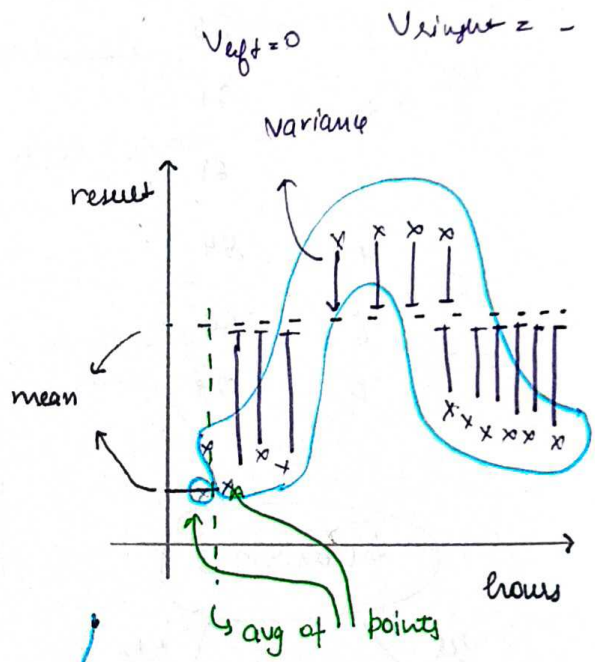 Vleft = 0
Vright = -
variance
result
mean
hours
avg of points